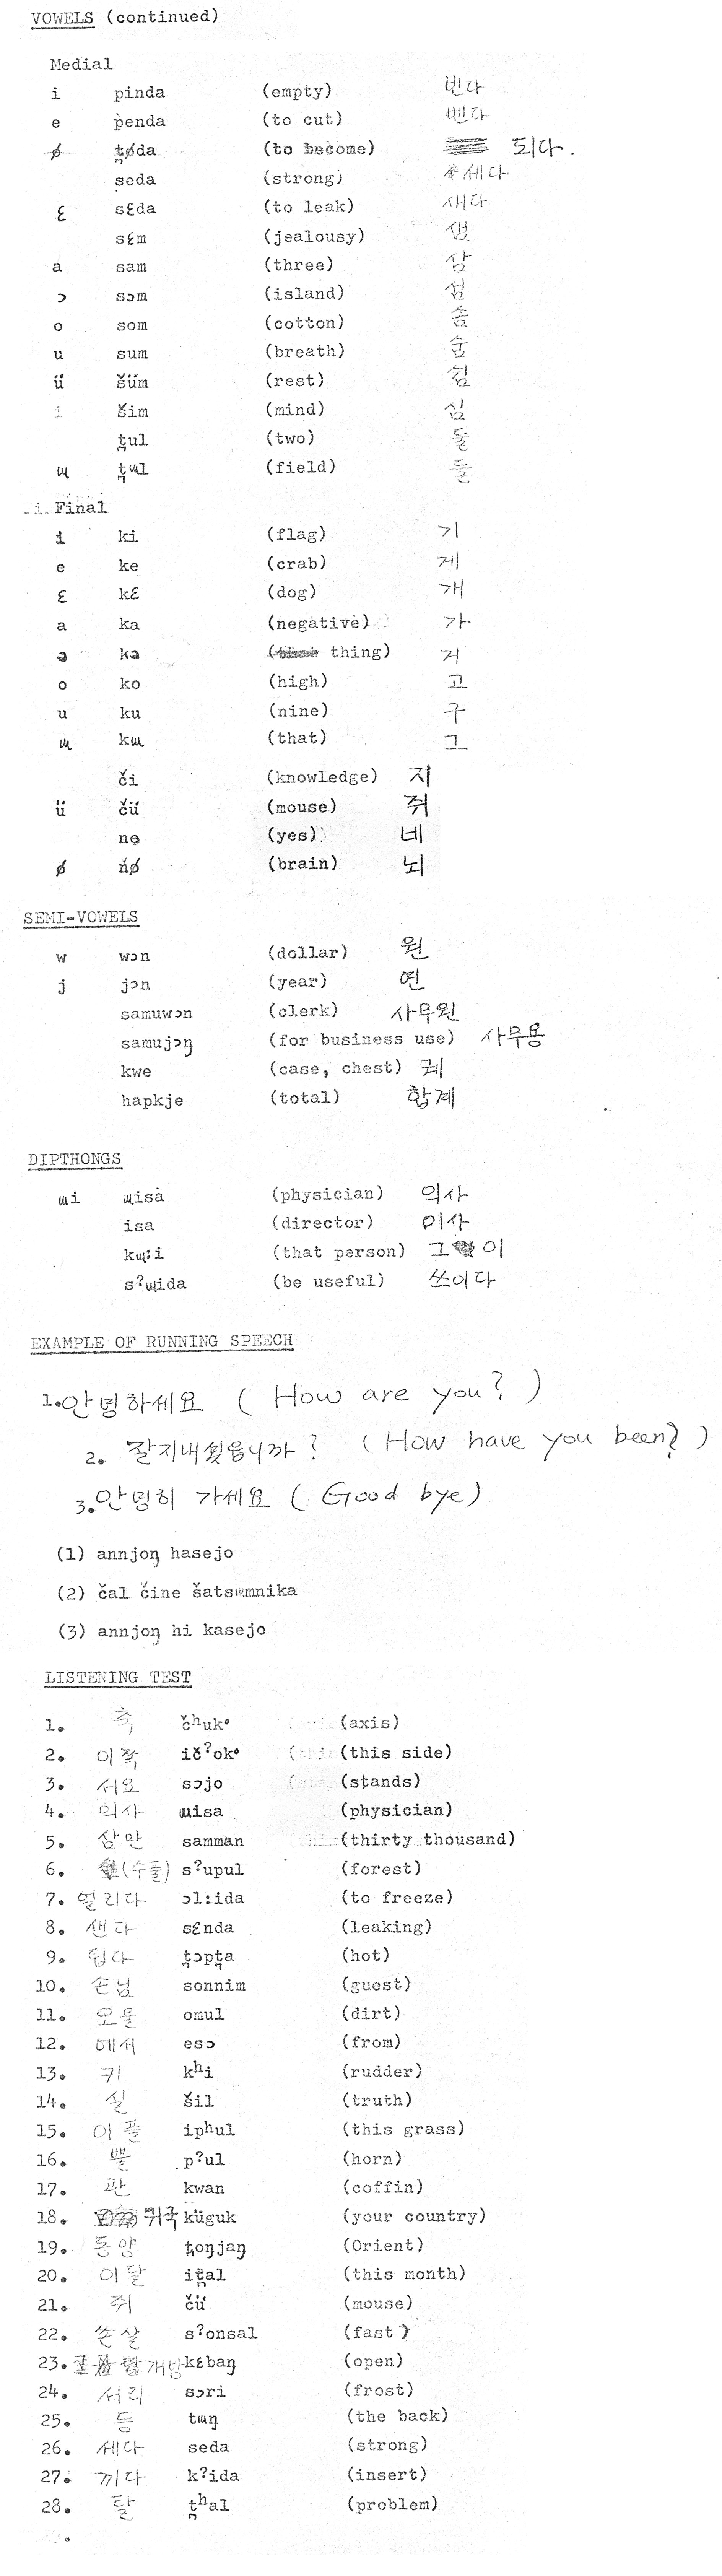 VOWELS (continued)
Medial
i pinda (empty) 빈다
e penda (to cut) 벤다
ø t̪øda (to become) 되다.
seda (strong) 세다
ɛ sɛda (to leak) 새다
sɛm (jealousy) 샘
a sam (three) 삼
ɔ sɔm (island) 섬
o som (cotton) 솜
u sum (breath) 숨
ü šüm (rest) 쉼
i šim (mind) 심
t̪ul (two) 둘
ɯ t̪ɯl (field) 들
Final
i ki (flag) 기
e ke (crab) 게
ɛ kɛ (dog) 개
a ka (negative) 가
ə kə (thing) 거
o ko (high) 고
u ku (nine) 구
ɯ kɯ (that) 그
či (knowledge) 지
ü čü (mouse) 쥐
ne (yes) 네
ø nø (brain) 뇌
SEMI-VOWELS
w wɔn (dollar) 원
j jɔn (year) 연
samuwɔn (clerk) 사무원
samujɔŋ (for business use) 사무용
kwe (case, chest) 궤
hapkje (total) 합계
DIPTHONGS
ɯi ɯisa (physician) 의사
isa (director) 이사
kɯ:i (that person) 그이
sˀɯida (be useful) 쓰이다
EXAMPLE OF RUNNING SPEECH
1. 안녕하세요 (How are you?)
2. 잘지내셨읍니까? (How have you been?)
3. 안녕히 가세요 (Good bye)
(1) annjoŋ hasejo
(2) čal čine šatsɯmnika
(3) annjoŋ hi kasejo
LISTENING TEST
1. 축 čʰuk° (axis)
2. 이쪽 ičˀok° (this side)
3. 서요 sɔjo (stands)
4. 의사 ɯisa (physician)
5. 삼만 samman (thirty thousand)
6. (수풀) sˀupul (forest)
7. 얼리다 ɔl:ida (to freeze)
8. 샌다 sɛnda (leaking)
9. 덥다 t̪ɔpt̪a (hot)
10. 손님 sonnim (guest)
11. 오물 omul (dirt)
12. 에서 esɔ (from)
13. 키 kʰi (rudder)
14. 실 šil (truth)
15. 이풀 ipʰul (this grass)
16. 뿔 pˀul (horn)
17. 관 kwan (coffin)
18. 귀국 küguk (your country)
19. 동양 t̪oŋjaŋ (Orient)
20. 이달 it̪al (this month)
21. 쥐 čü (mouse)
22. 쏜살 sˀonsal (fast)
23. 개방 kɛbaŋ (open)
24. 서리 sɔri (frost)
25. 등 tɯŋ (the back)
26. 세다 seda (strong)
27. 끼다 kˀida (insert)
28. 탈 t̪ʰal (problem)